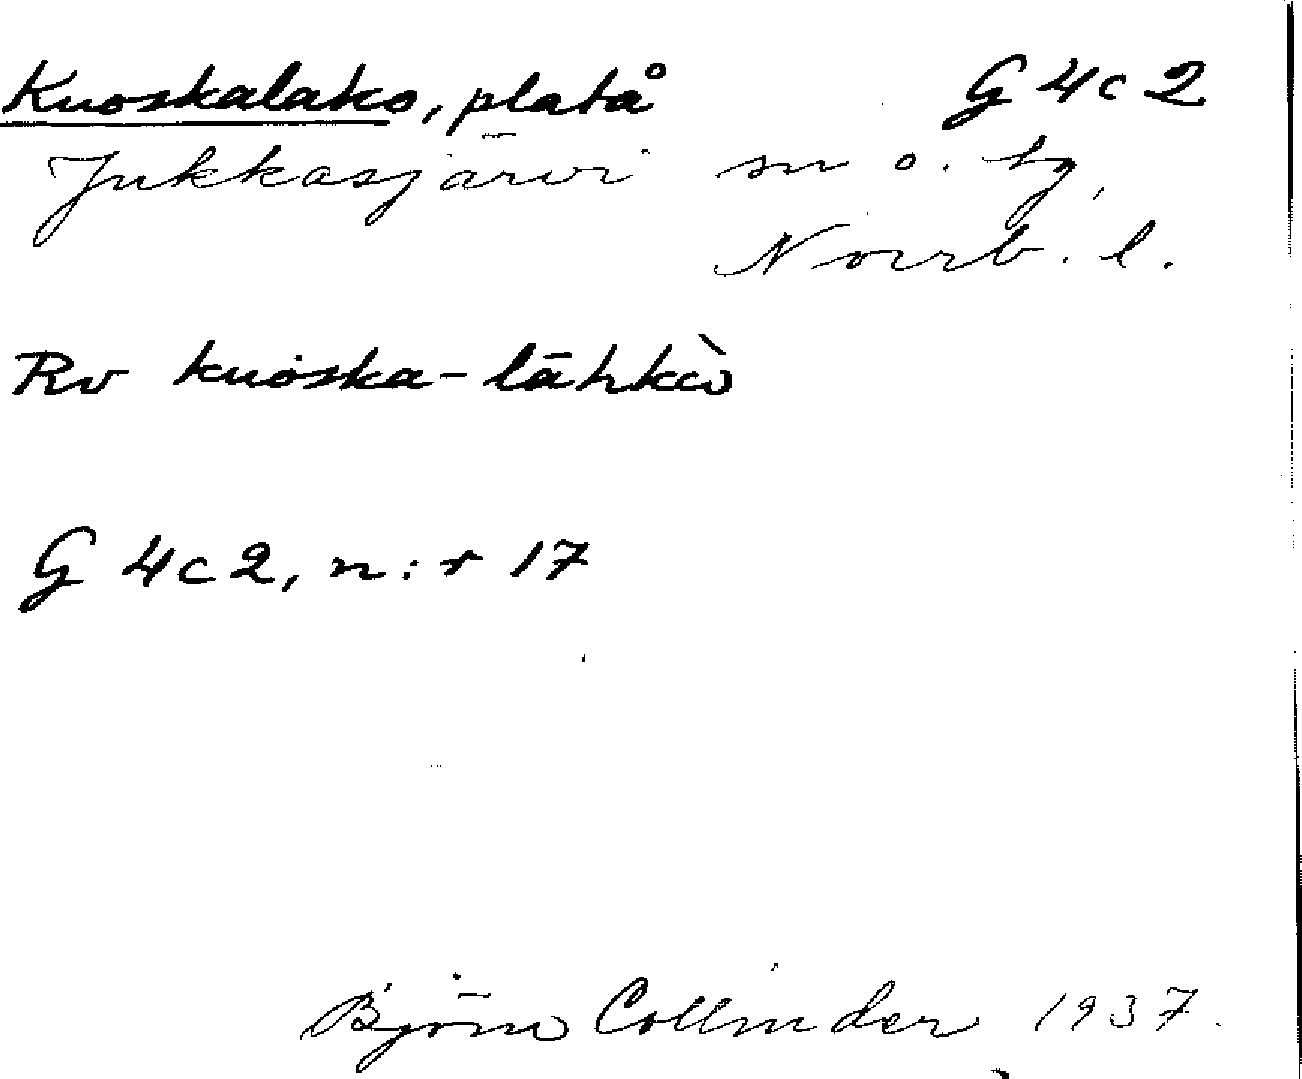 Kuoskalako, platå G 4c 2
Jukkasjärvi sn o. tg,
Norrb. l.
Rv kuoska-
G 4c2, n:r 17
Björn Collinder 1937.